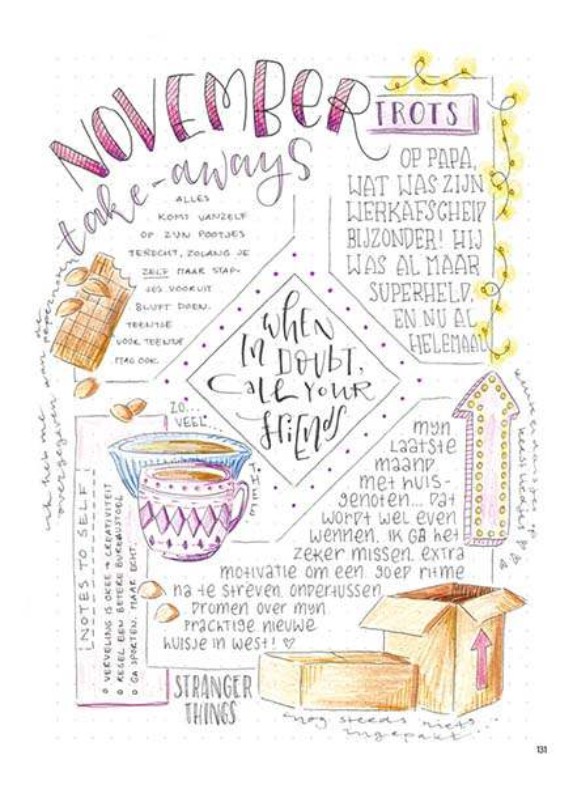 NOVEMBER
take-aways
ALLES
KOMT VANZELF
OP ZIJN POOTJES
TERECHT, ZOLANG JE
ZELF MAAR STAP-
JES VOORUIT
BLIJFT DOEN.
TEENTJE
VOOR TEENTJE
MAG OOK.
TROTS
OP PAPA,
WAT WAS ZIJN
WERKAFSCHEID
BIJZONDER! HIJ
WAS AL MAAR
SUPERHELD.
EN NU AL
HELEMAAL
WHEN
IN DOUBT,
CALL YOUR
FRIENDS
ik heb me
overgegeven aan de
pepernoten
ZO...
VEEL...
THEE
NOTES TO SELF
VERVELING IS OKEE → CREATIVITEIT
REGEL EEN BETERE BUREAUSTOEL
GA SPORTEN. MAAR ECHT.
mijn
Laatste
maand
met huis-
genoten... Dat
wordt wel even
wennen. ik ga het
zeker missen. extra
motivatie om een goed ritme
na te streven. ondertussen
Dromen over mijn
prachtige nieuwe
huisje in west! ♡
STRANGER
THINGS
nog steeds niets
ingepakt...
131